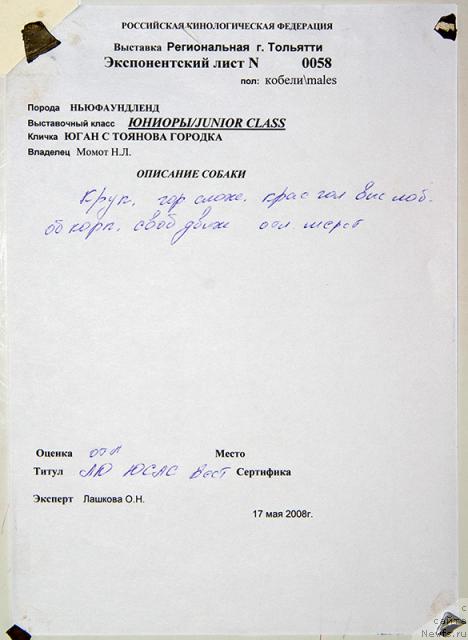 РОССИЙСКАЯ КИНОЛОГИЧЕСКАЯ ФЕДЕРАЦИЯ
Выставка Региональная г. Тольятти
Экспонентский лист N 0058
пол: кобели\males
Порода НЬЮФАУНДЛЕНД
Выставочный класс ЮНИОРЫ/JUNIOR CLASS
Кличка ЮГАН С ТОЯНОВА ГОРОДКА
Владелец Момот Н.Л.
ОПИСАНИЕ СОБАКИ
Крук, гар слож. крас гол выс лоб.
об корп. своб движ отл. шерст
Оценка отл Место
Титул ЛЮ ЮСАС Вест Сертифика
Эксперт Лашкова О.Н.
17 мая 2008г.
с
сайта
Newfs.ru